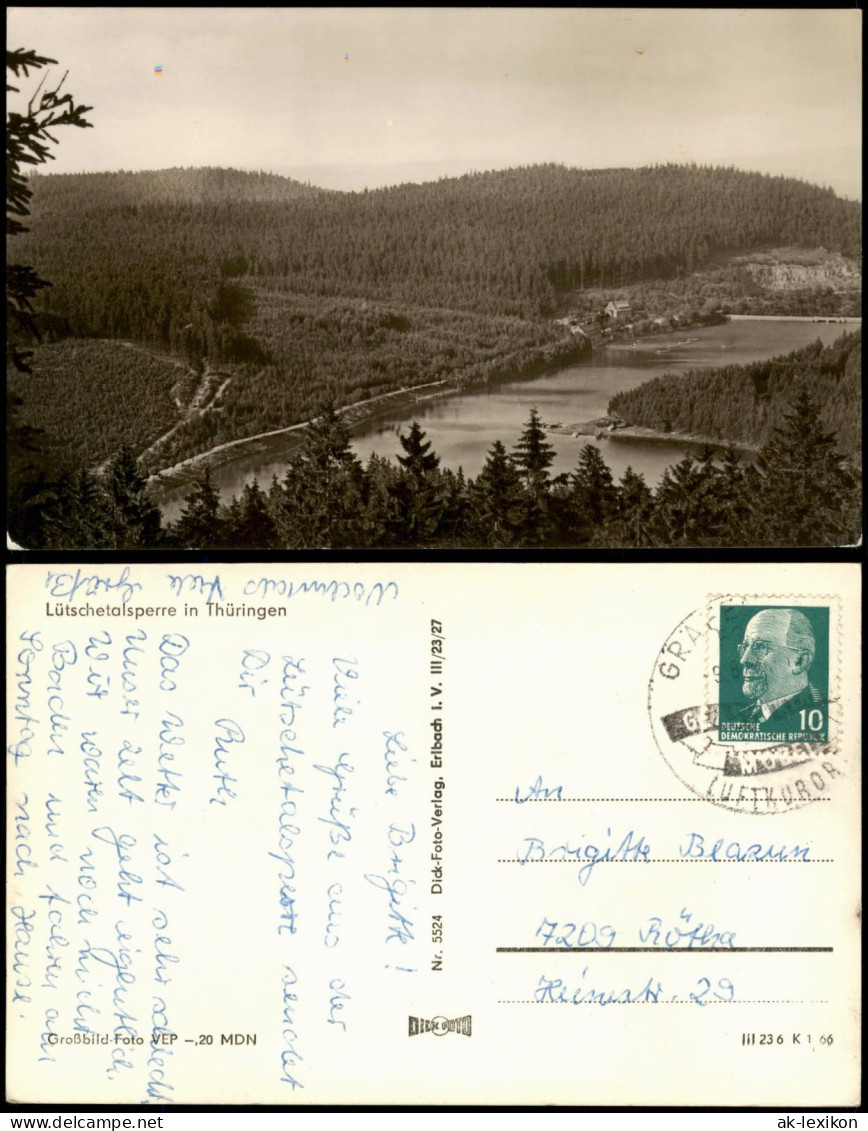 Lütschetalsperre in Thüringen
Liebe Brigitte!
Viele Grüße aus der
Lütschetalsperre sendet
Dir
Ruth
Das Wetter ist sehr schlecht.
Unser Zelt geht eigentlich.
Wir waren noch nicht
Baden und fahren am
Sonntag nach Hause.
Nochmals Viele Grüße
Großbild-Foto VEP –,20 MDN
Nr. 5524 Dick-Foto-Verlag, Erlbach i. V. III/23/27
DICK FOTO
LUFTKURORT
10
DEUTSCHE
DEMOKRATISCHE REPUBLIK
An
Brigitte Blasun
7209 Rötha
Heinestr. 29
III 23 6 K 1 66
ak-lexikon